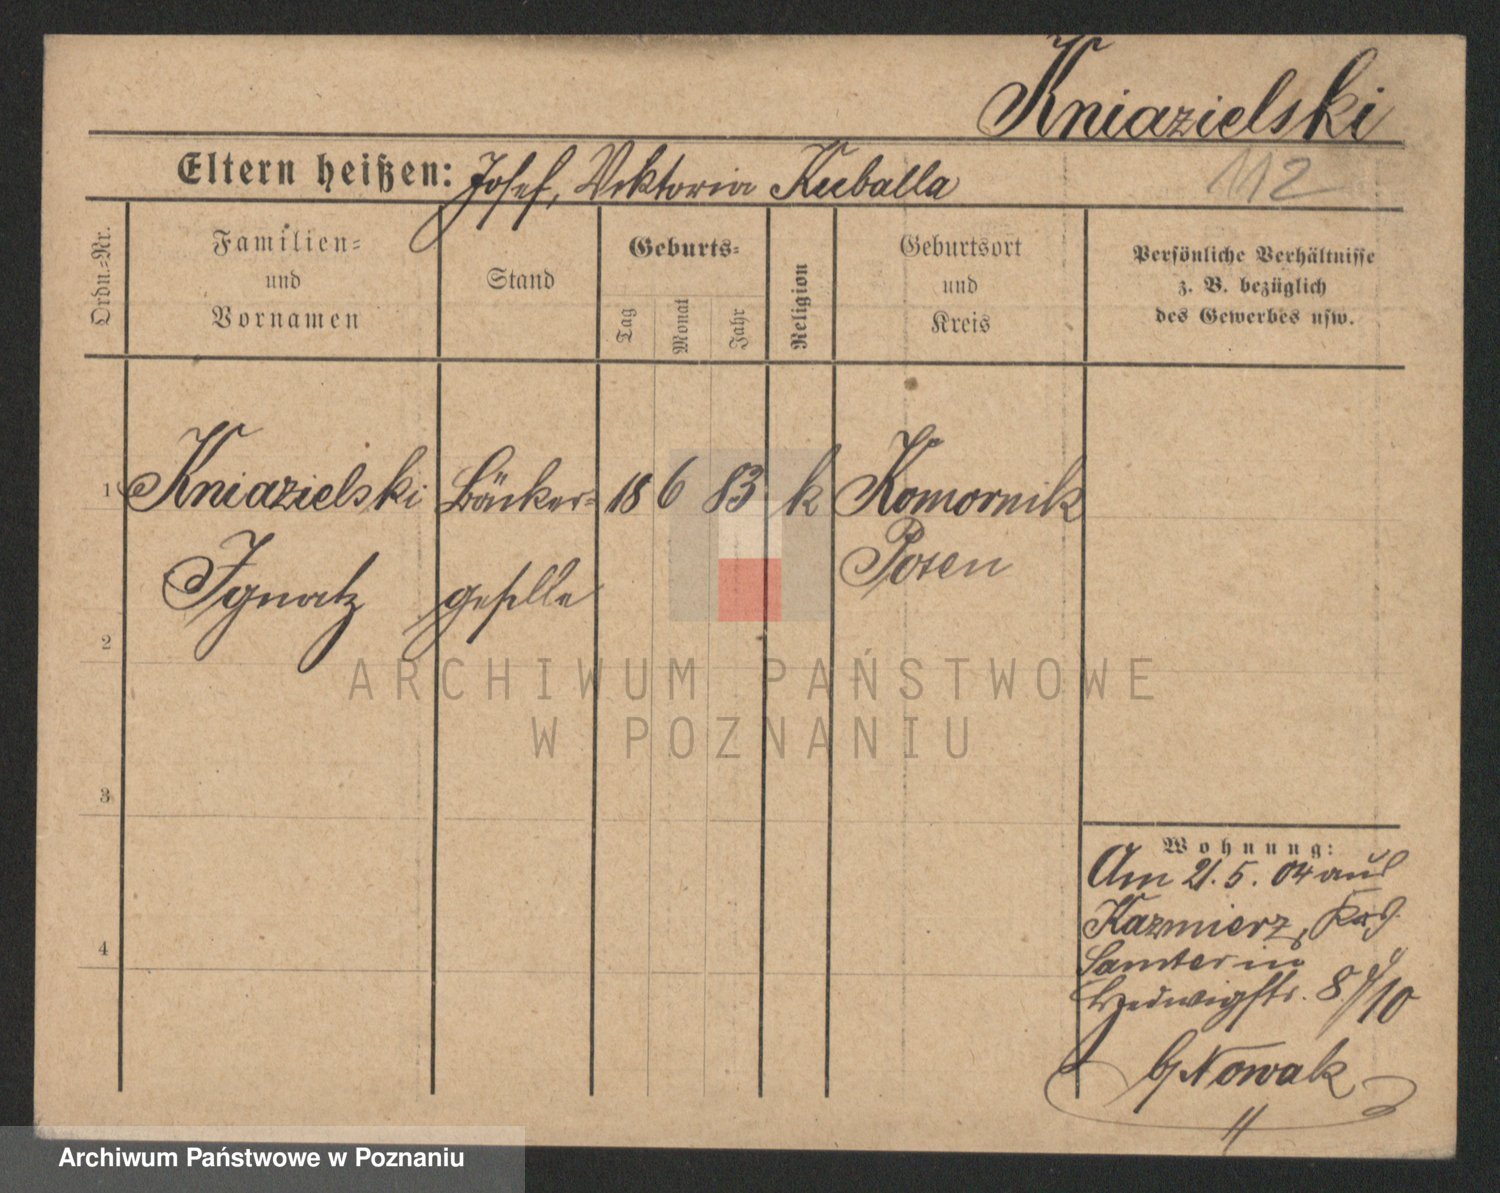 Kniazielski
Eltern heißen: Josef, Viktoria Kuballa
112
Ordn.-Nr.
Familien-
und
Vornamen
Stand
Geburts-
Tag
Monat
Jahr
Religion
Geburtsort
und
Kreis
Persönliche Verhältnisse
z. B. bezüglich
des Gewerbes usw.
1 Kniazielski Bäcker- 18 6 83 k Komornik
Ignatz geselle Posen
2
3
4
Wohnung:
Am 21.5.04 aus
Kazmierz,
Samter in
Hedwigstr. 8/10
b/ Nowak
ARCHIWUM PAŃSTWOWE
W POZNANIU
Archiwum Państwowe w Poznaniu